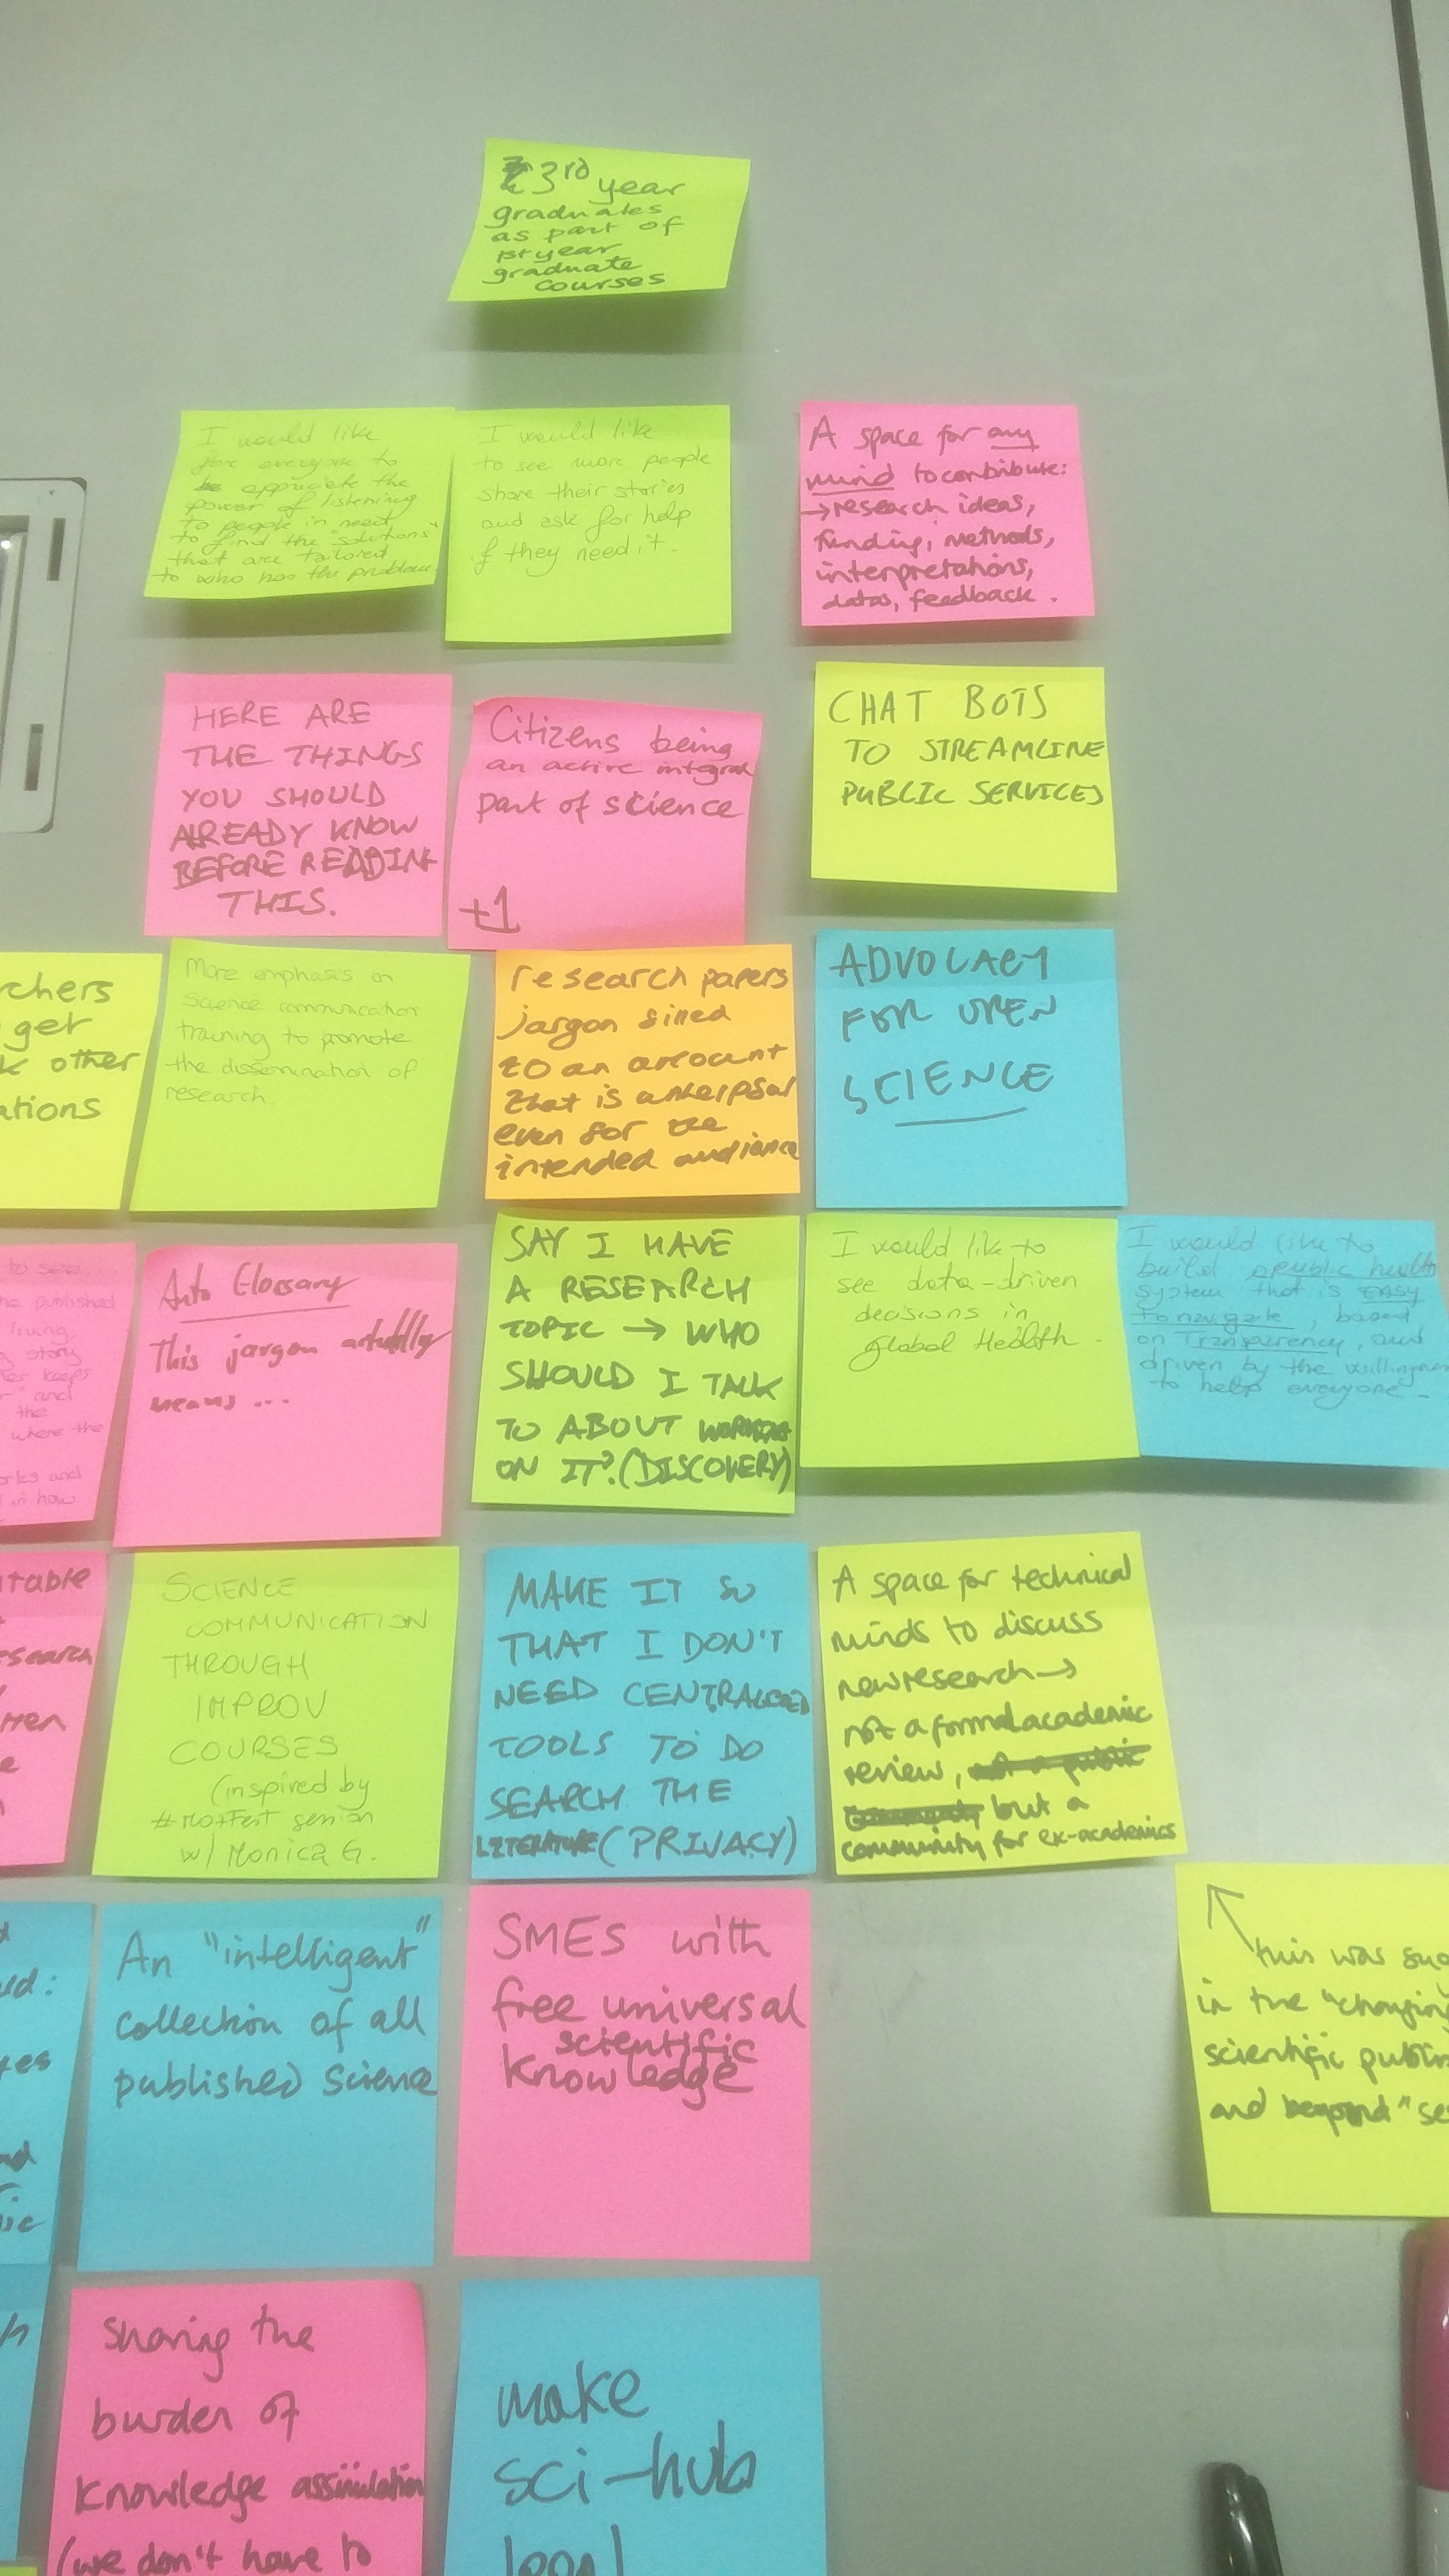 3rd year
graduates
as part of
1st year
graduate
courses
I would like
for everyone to
be appreciate the
power of listening
to people in need
to find the "solutions"
that are tailored
to who has the problem
I would like
to see more people
share their stories
and ask for help
if they need it.
A space for any
mind to contribute:
→research ideas,
funding, methods,
interpretations,
datas, feedback.
HERE ARE
THE THINGS
YOU SHOULD
ALREADY KNOW
BEFORE READING
THIS.
Citizens being
an active integral
part of science
+1
CHAT BOTS
TO STREAMLINE
PUBLIC SERVICES
chers
get
k other
ations
More emphasis on
science communication
training to promote
the dissemination of
research.
research papers
jargon sined
to an amount
that is
even for the
intended audience
ADVOCACY
FOR OPEN
SCIENCE
to see
published
living
story
keeps
and
the
where the
orks and
in how
Auto Glossary
This jargon actually
means ...
SAY I HAVE
A RESEARCH
TOPIC → WHO
SHOULD I TALK
TO ABOUT WORKING
ON IT? (DISCOVERY)
I would like to
see data-driven
decisions in
global Health.
I would like to
build a public health
system that is EASY
to navigate, based
on Transparency, and
driven by the willingness
to help everyone.
table
search
SCIENCE
COMMUNICATION
THROUGH
IMPROV
COURSES
(inspired by
#MozFest session
w/ Monica G.
MAKE IT SO
THAT I DON'T
NEED CENTRALIZED
TOOLS TO DO
SEARCH THE
LITERATURE (PRIVACY)
A space for technical
minds to discuss
new research →
not a formal academic
review, not a public
community but a
community for ex-academics
An "intelligent"
collection of all
published science
SMEs with
free universal
scientific
knowledge
this was sug
in the "changin
scientific public
and beyond" se
sharing the
burden of
knowledge assimilation
(we don't have to
make
sci-hub
legal